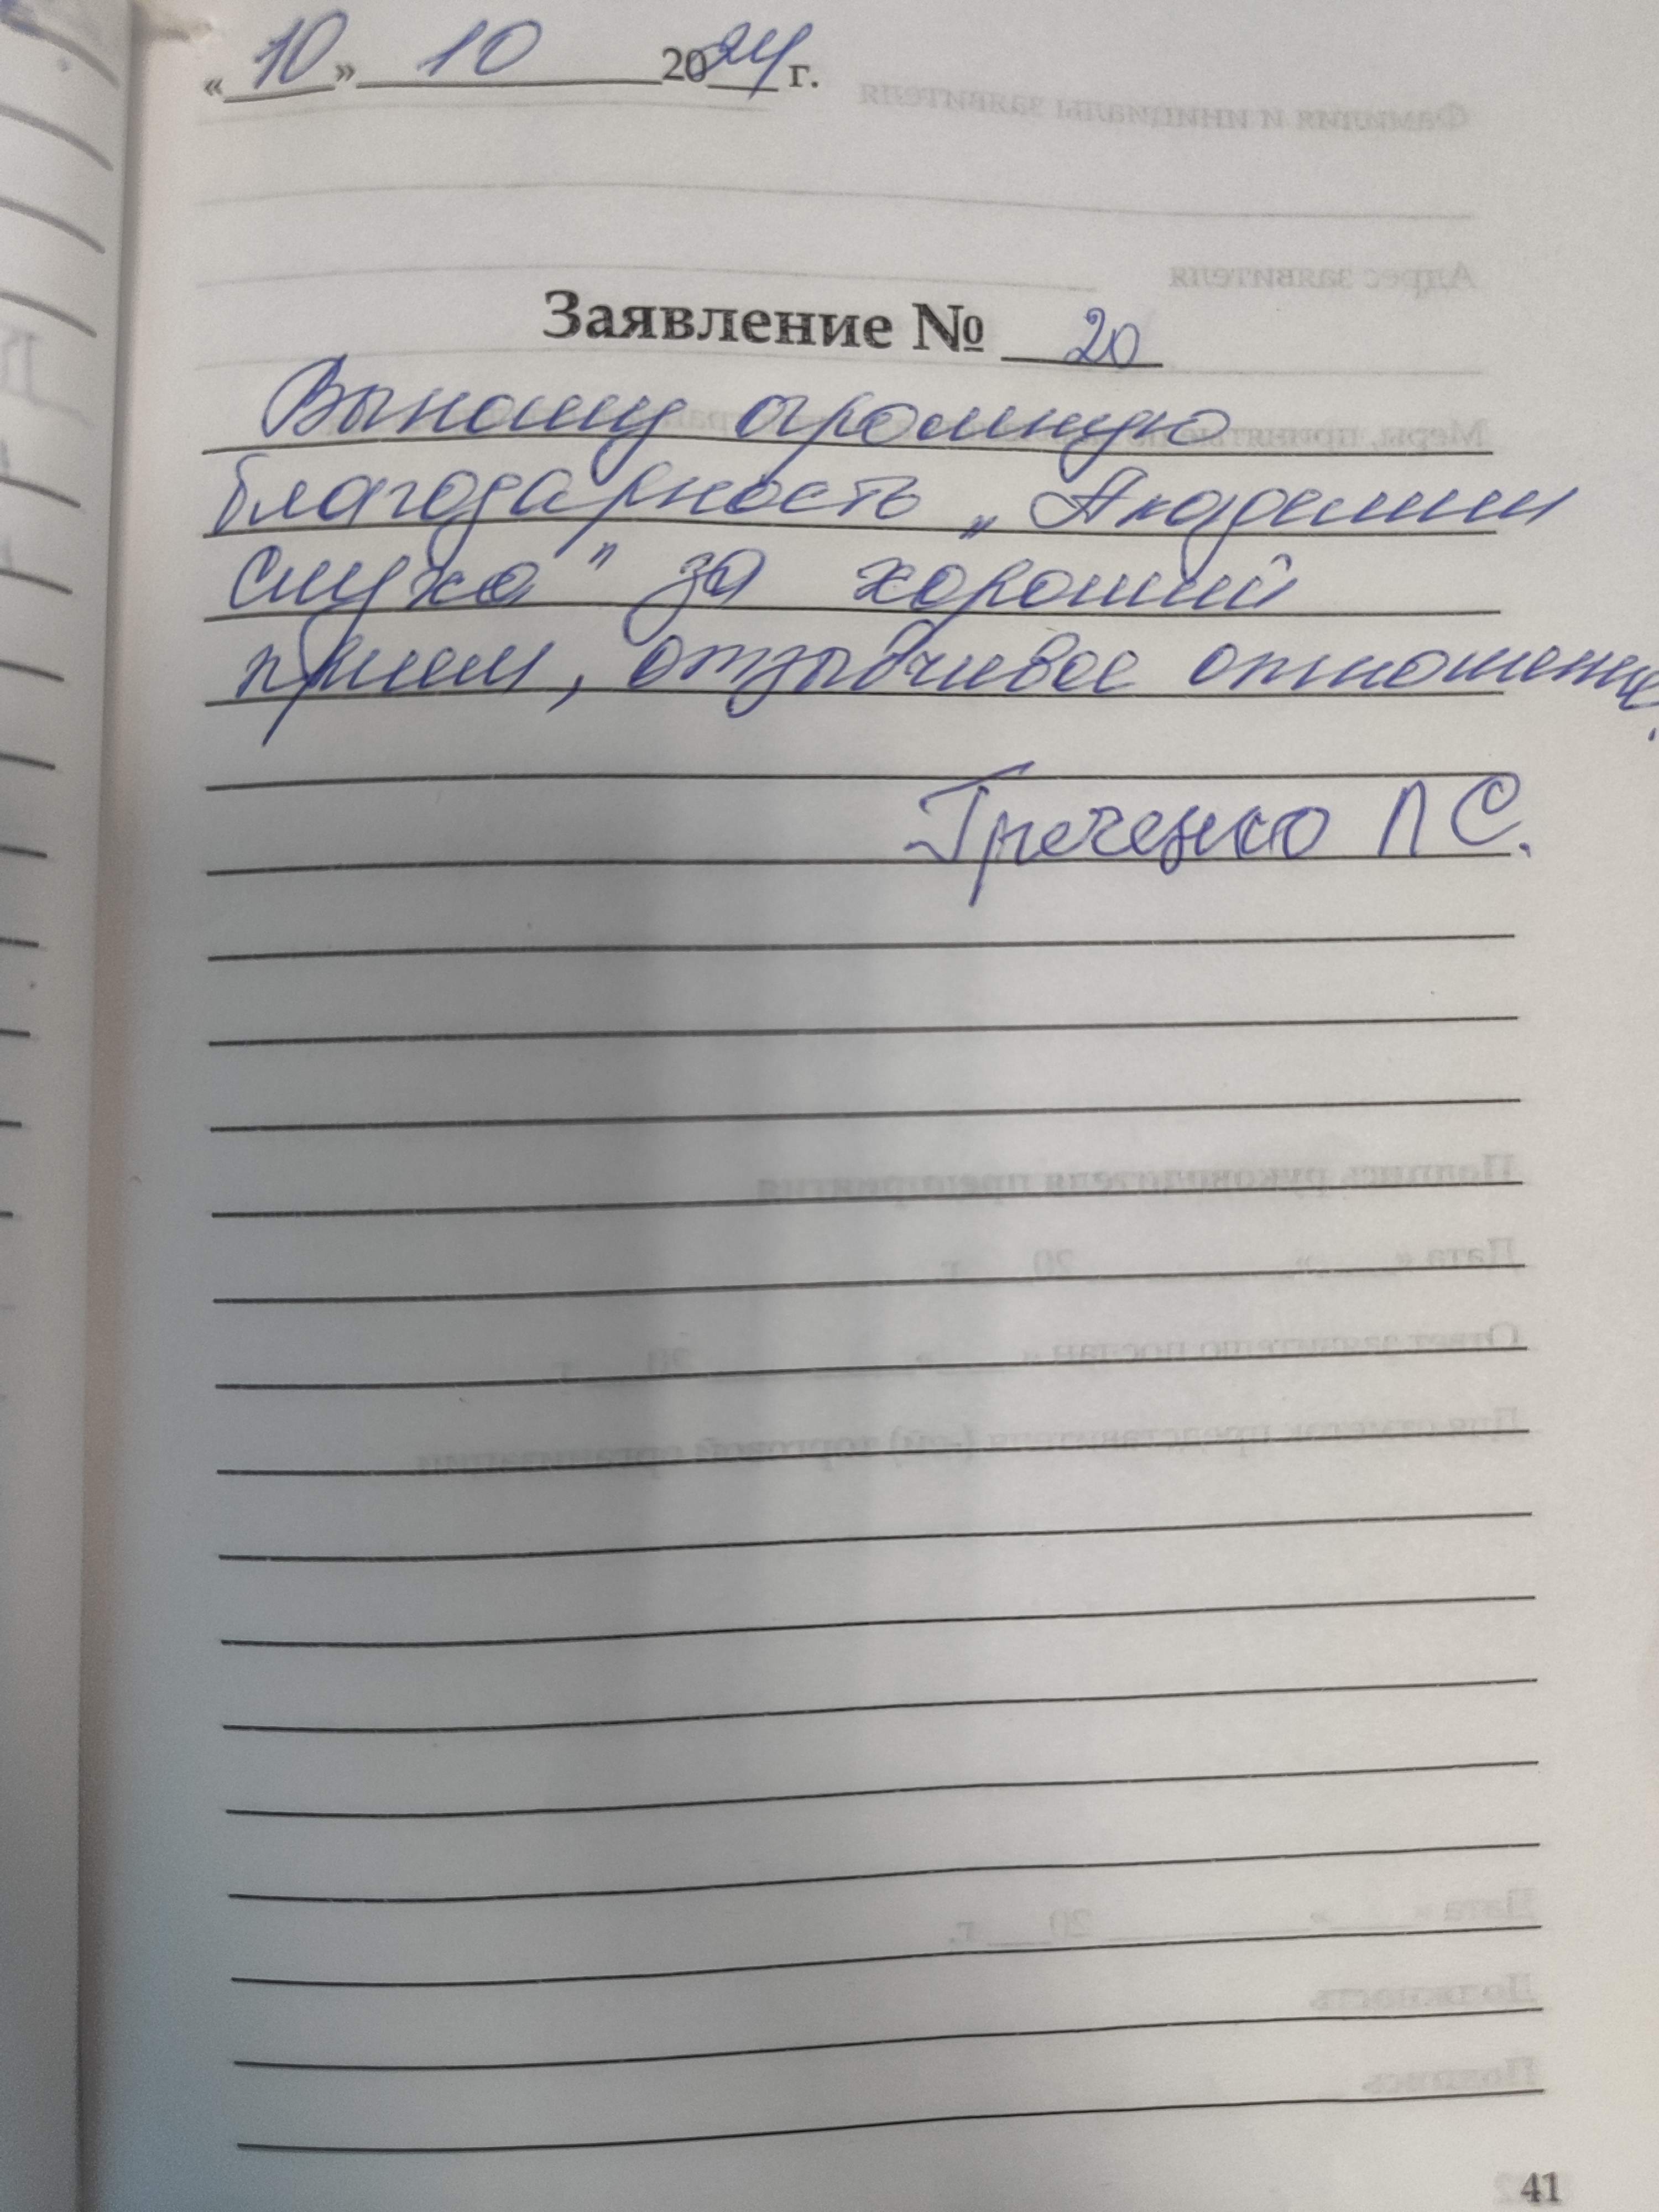 «10» 10 2024 г.
Заявление № 20
Выношу огромную
благодарность „Академии
слуха" за хороший
прием, отзывчивое отношение.
Греченко Л С.
41